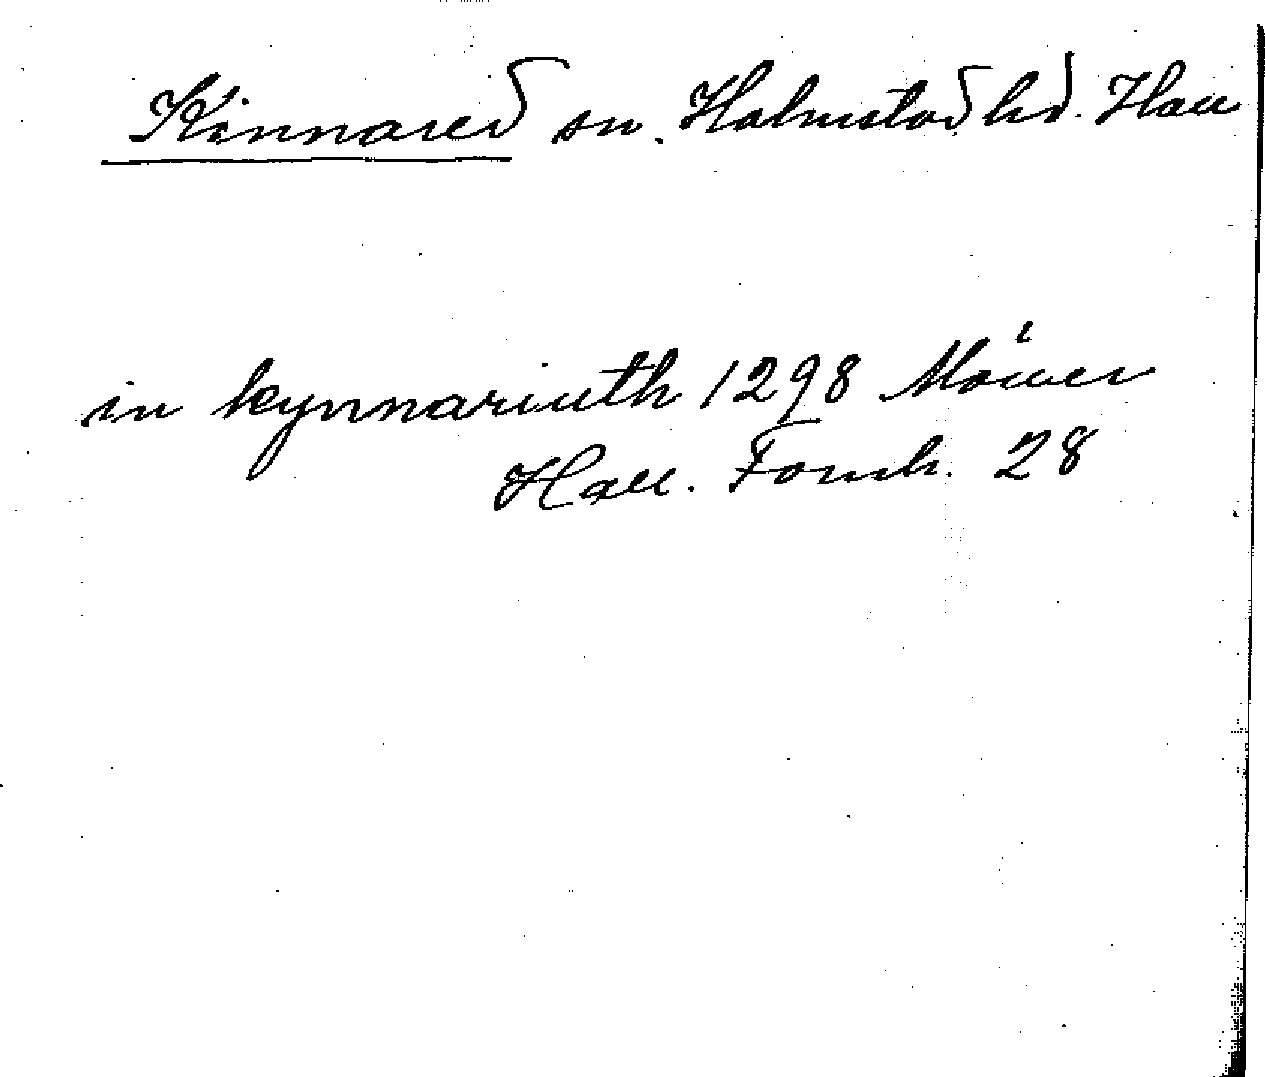 Kinnared sn. Halmstad hd. Hall
in kynnariuth 1298 Möller
Hall. Fornh. 28